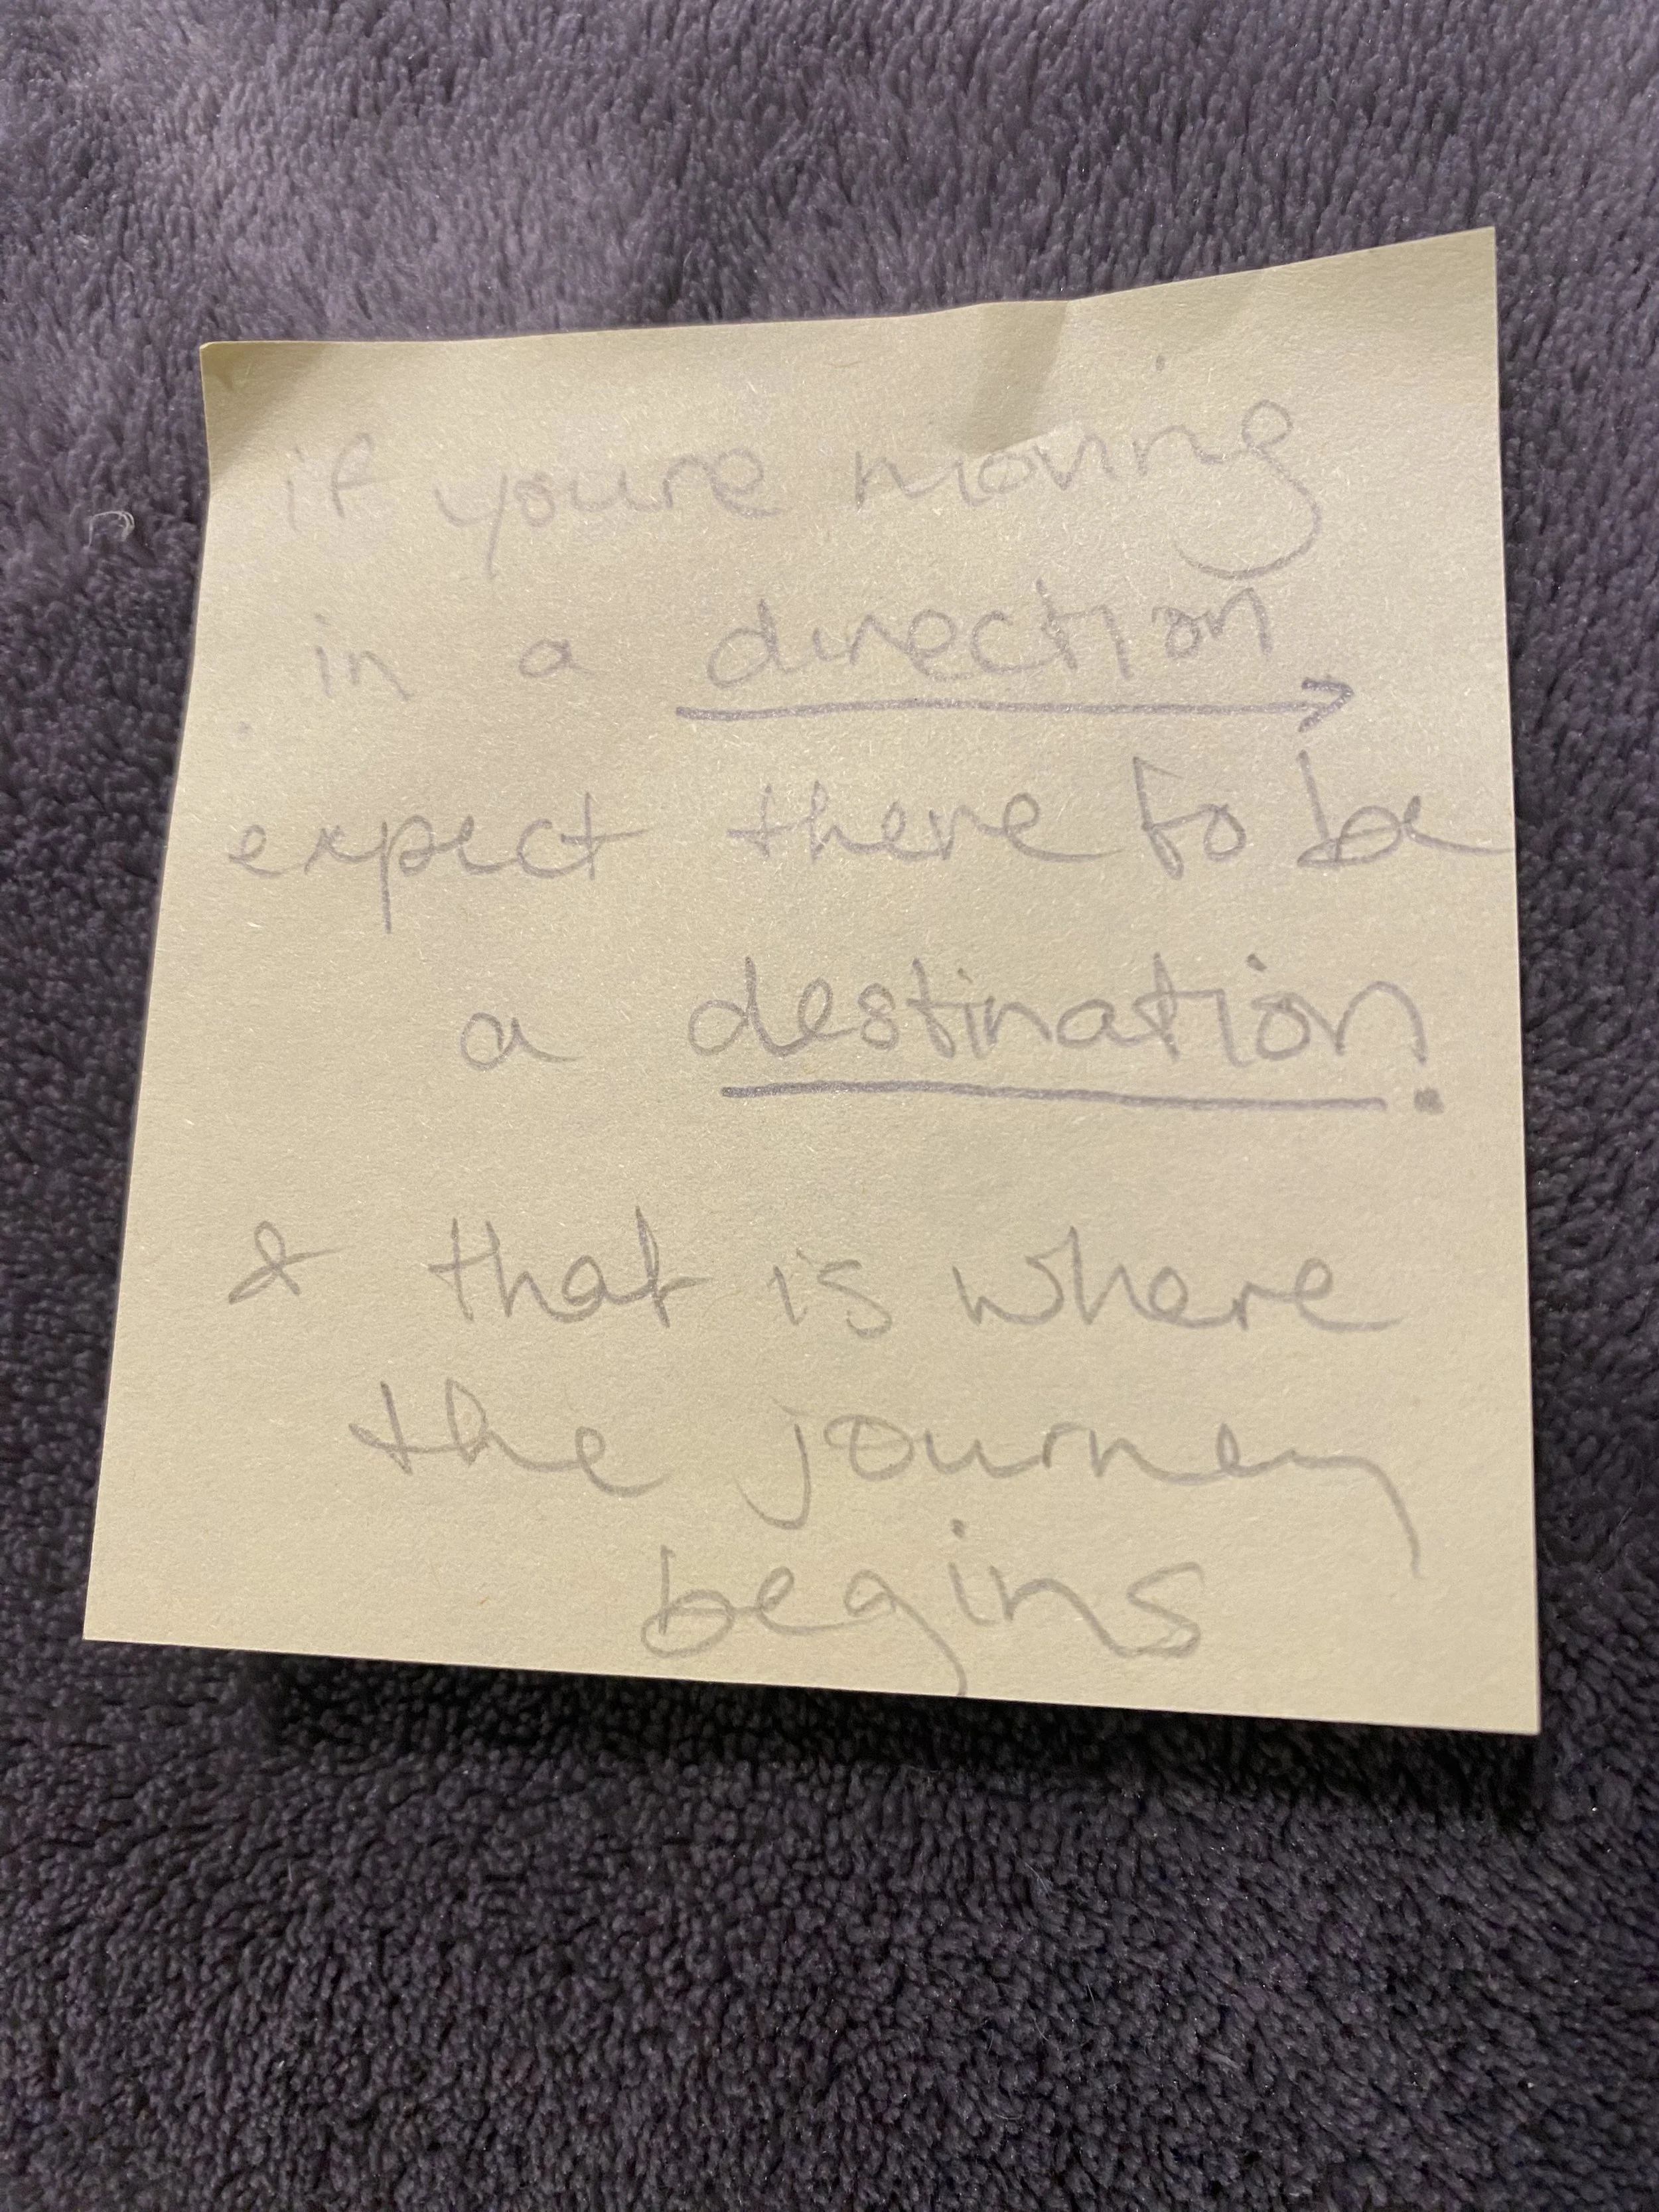 if youre moving
in a direction
expect there to be
a destination.
& that is where
the journey
begins